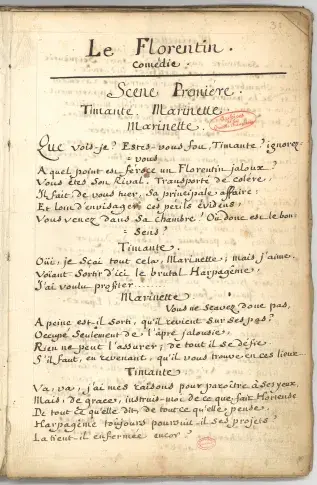 Le Florentin.
Comédie.
Scene Premiere.
Timante. Marinette.
Marinette.
Que vois-je? Estes-vous fou, Timante? ignorez
=vous
A quel point est féroce un Florentin jaloux?
Vous êtes Son Rival. Transporté de colère,
Il fait de vous tüer, Sa principale affaire:
Et loin d'envisager ces périls évidens,
Vous venez dans Sa chambre! Où donc est le bon
=Sens?
Timante.
Oüi, je Sçai tout cela, Marinette; mais j'aime.
Voïant Sortir d'ici le brutal Harpagême,
J'ai voulu profiter........
Marinette
Vous ne Scavez donc pas,
A peine est-il Sorti, qu'il revient Sur Ses pas?
Occupé Seulement de l'âpre jalousie,
Rien ne peut l'assurer; de tout il se défie
S'il faut, en revenant, qu'il vous trouve en ces lieux
Timante
Va, va, j'ai mes raisons pour paroître à Ses yeux.
Mais, de grace, instruis-moi de ce que fait Hortense
De tout ce qu'elle dit, de tout ce qu'elle pense.
Harpagême toûjours poursuit-il Ses projets?
La tient-il enfermée encor?